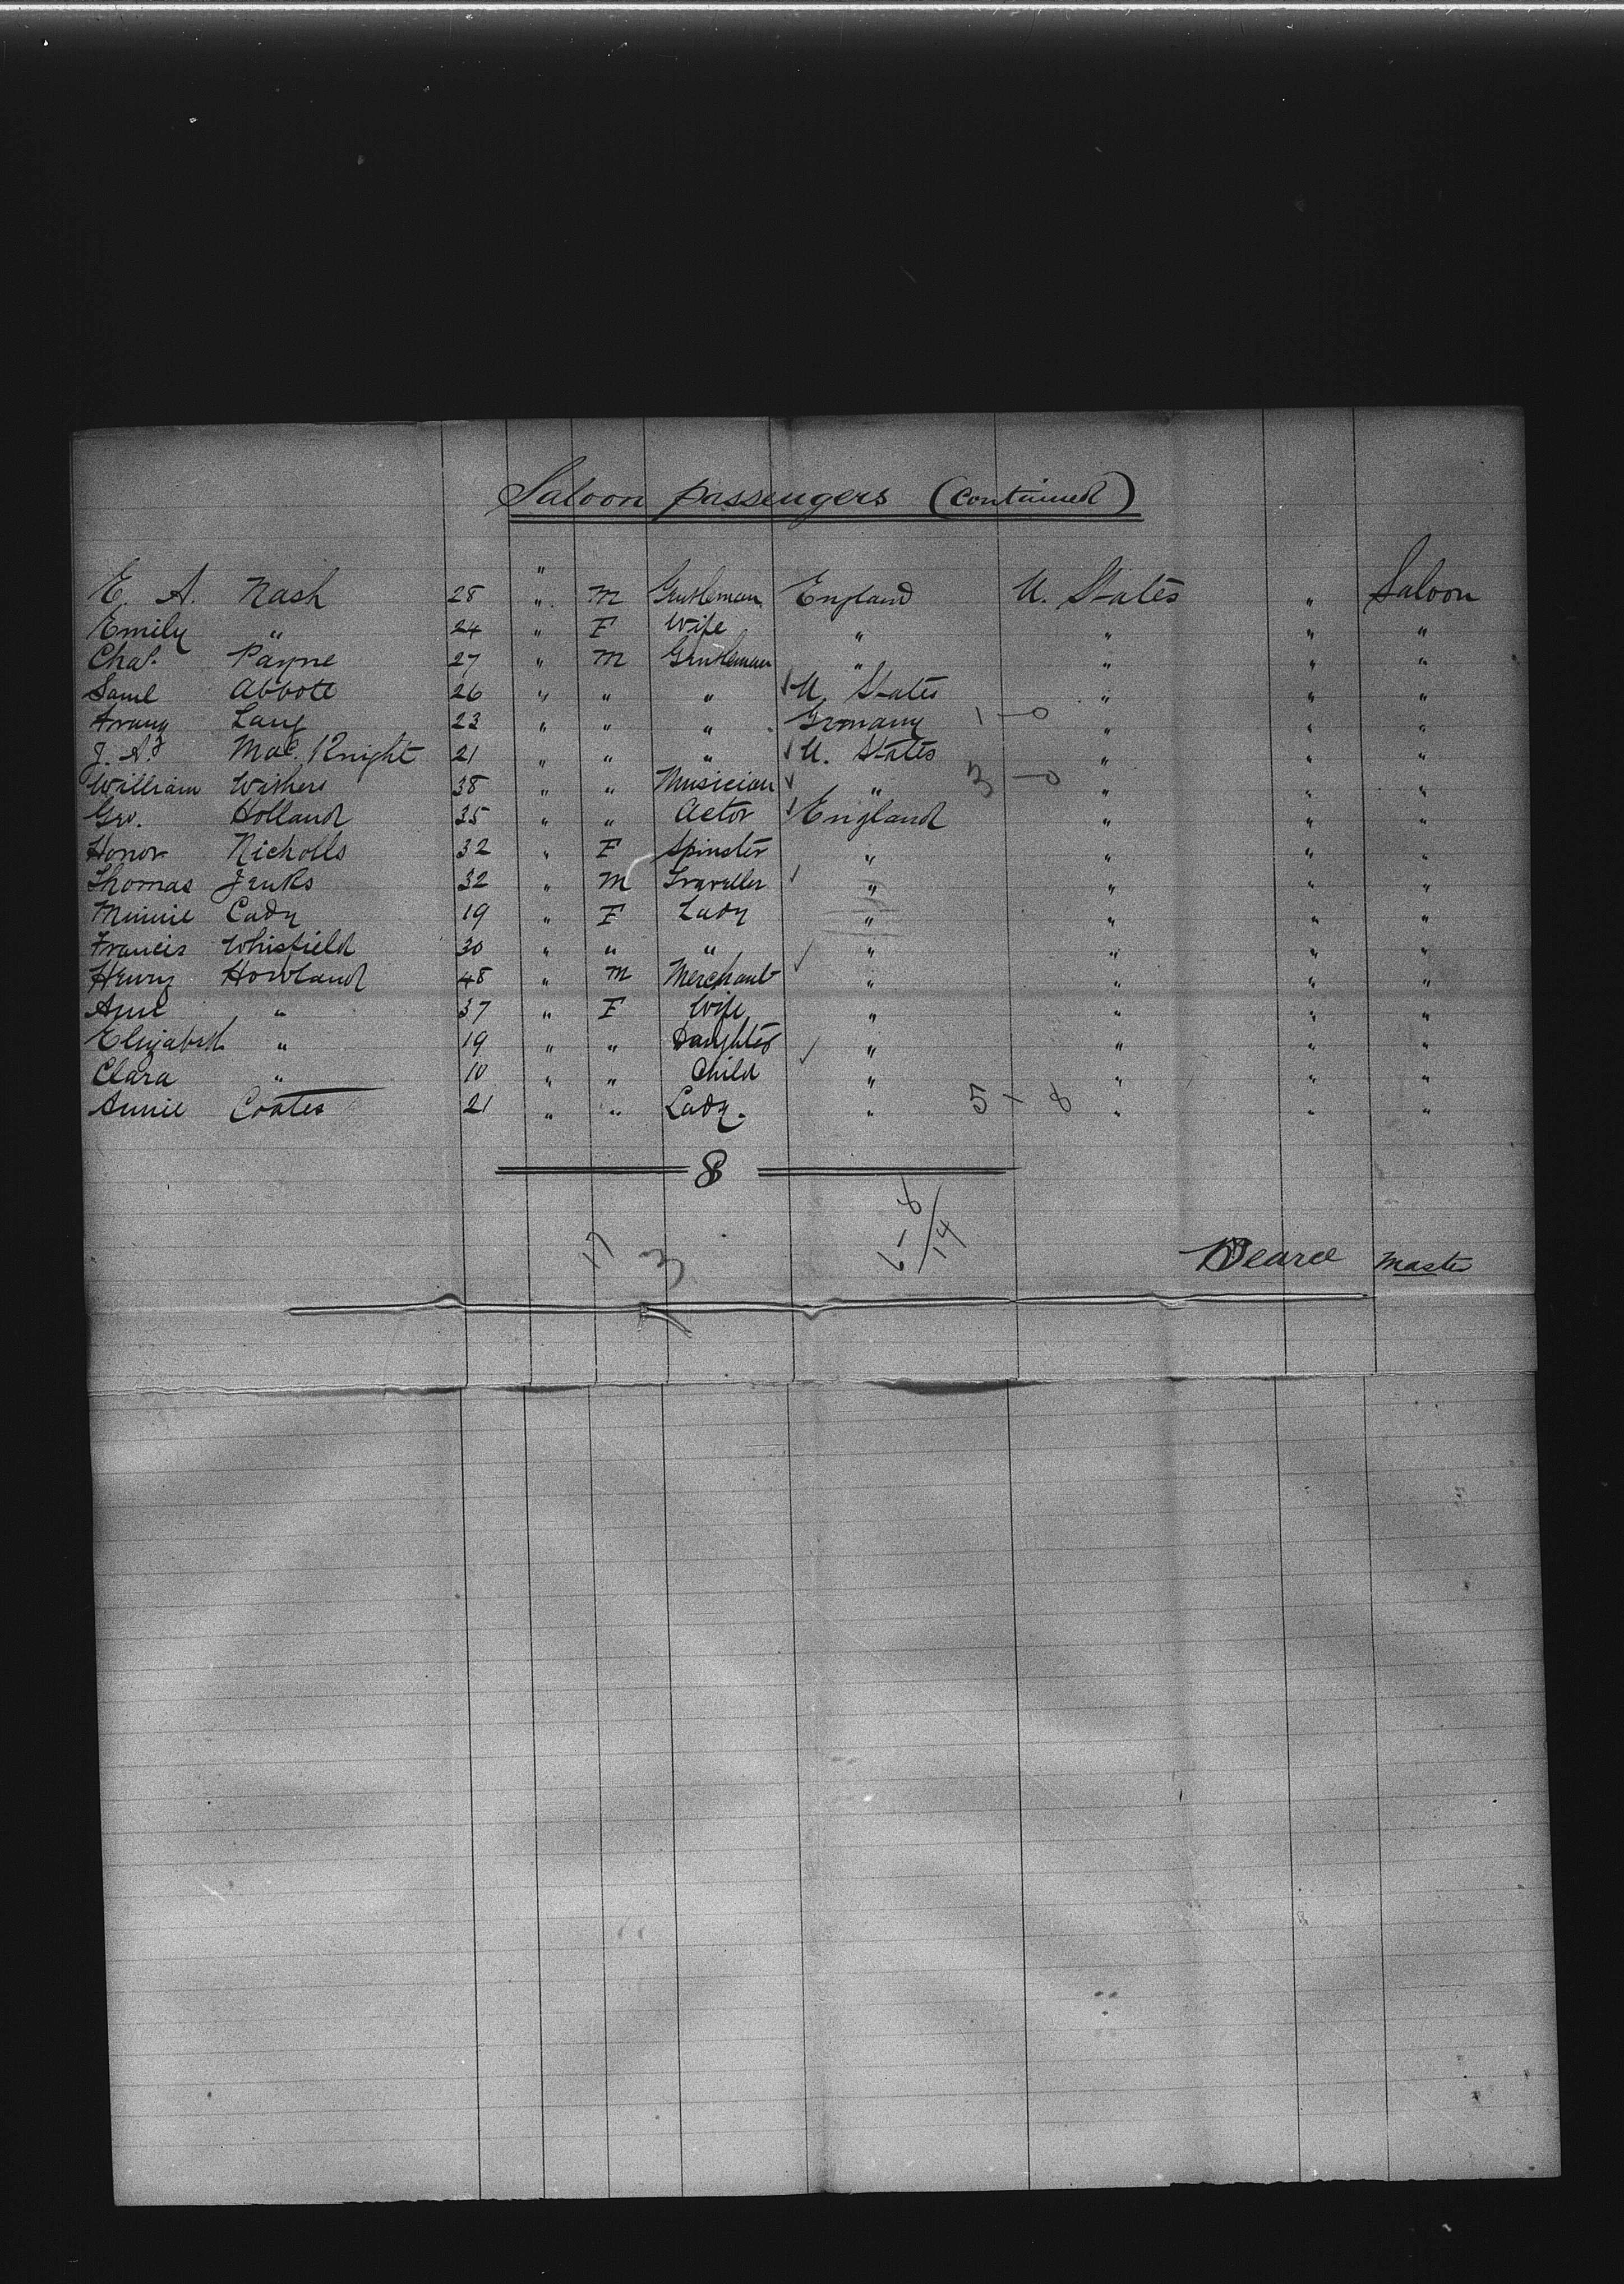 Saloon passengers (continued)
"
E. A. Nash 28 " M Gentleman England U. States " Saloon
Emily " 24 " F Wife " " " "
Chas. Payne 27 " M Gentleman " " " "
Saml Abbott 26 " " " ✓ U. States " " "
Lang 23 " " " Germany 1 - 0 " " "
J. A. Mac Knight 21 " " " ✓ U. States " " "
William Withers 38 " " Musician ✓ " 3 - 0 " " "
Geo. Holland 35 " " Actor ✓ England " " "
Honor Nicholls 32 " F Spinster " " " "
Thomas Jenks 32 " M Traveller ✓ " " " "
Minnie Cady 19 " F Lady " " " "
Francis Whisfield 30 " " " ✓ " " " "
Henry Howland 48 " M Merchant " " " "
Ann " 37 " F Wife " " " "
Elizabeth " 19 " " Daughter ✓ " " " "
Clara " 10 " " Child " " " "
Annie Coates 21 " " Lady. " 5 - 8 " " "
8
17 3 6 - 8 / 14
Pearce Master